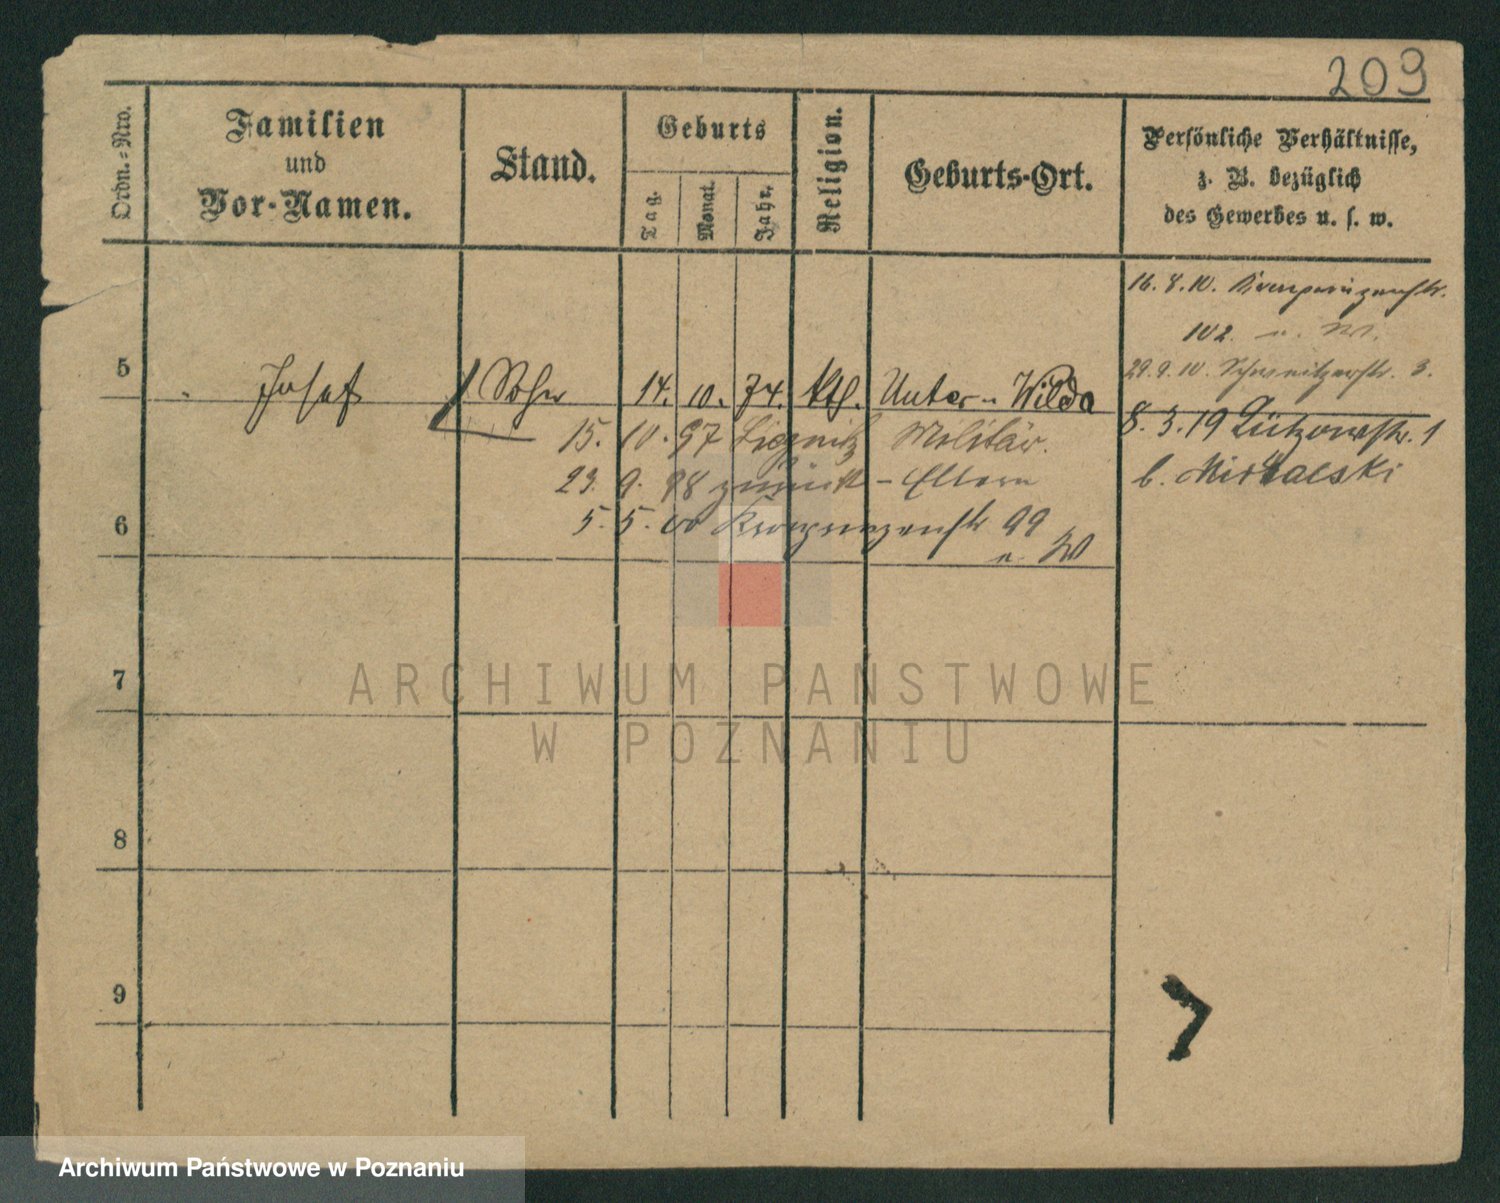 209
Ordn.=Nro.
Familien
und
Vor-Namen.
Stand.
Geburts
Tag.
Monat.
Jahr.
Religion.
Geburts-Ort.
Persönliche Verhältnisse,
z. B. bezüglich
des Gewerbes u. s. w.
16. 8. 10. Kronprinzenstr.
102. u. W.
29. 9. 10. Schweitzerstr. 3.
5 Josef Sohn 14. 10. 74. kth. Unter- Wilda
8. 3. 19 Lützowstr. 1
b. Michalski
15. 10. 97 Liegnitz Militär.
23. 9. 98 zurück - Eltern
6
5. 5. 00 Kronprinzenstr 99
u. W
7
8
9
ARCHIWUM PAŃSTWOWE
W POZNANIU
Archiwum Państwowe w Poznaniu